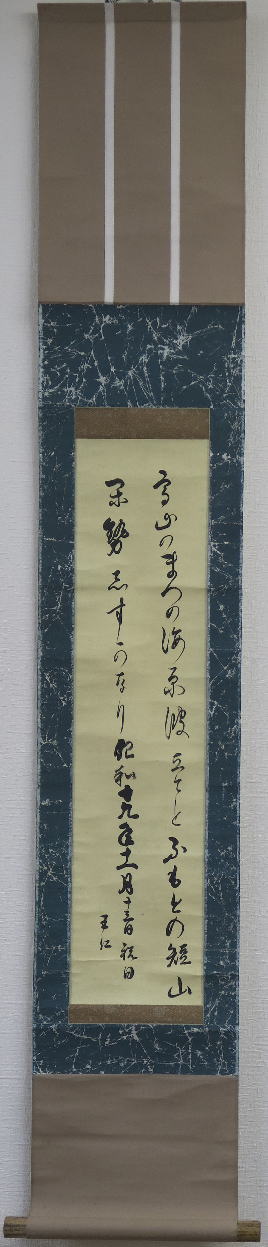 高山のまつの海原波立てとふもとの短山
閑勢しすかのなり昭和十九年十一月十三日 祝日
王仁